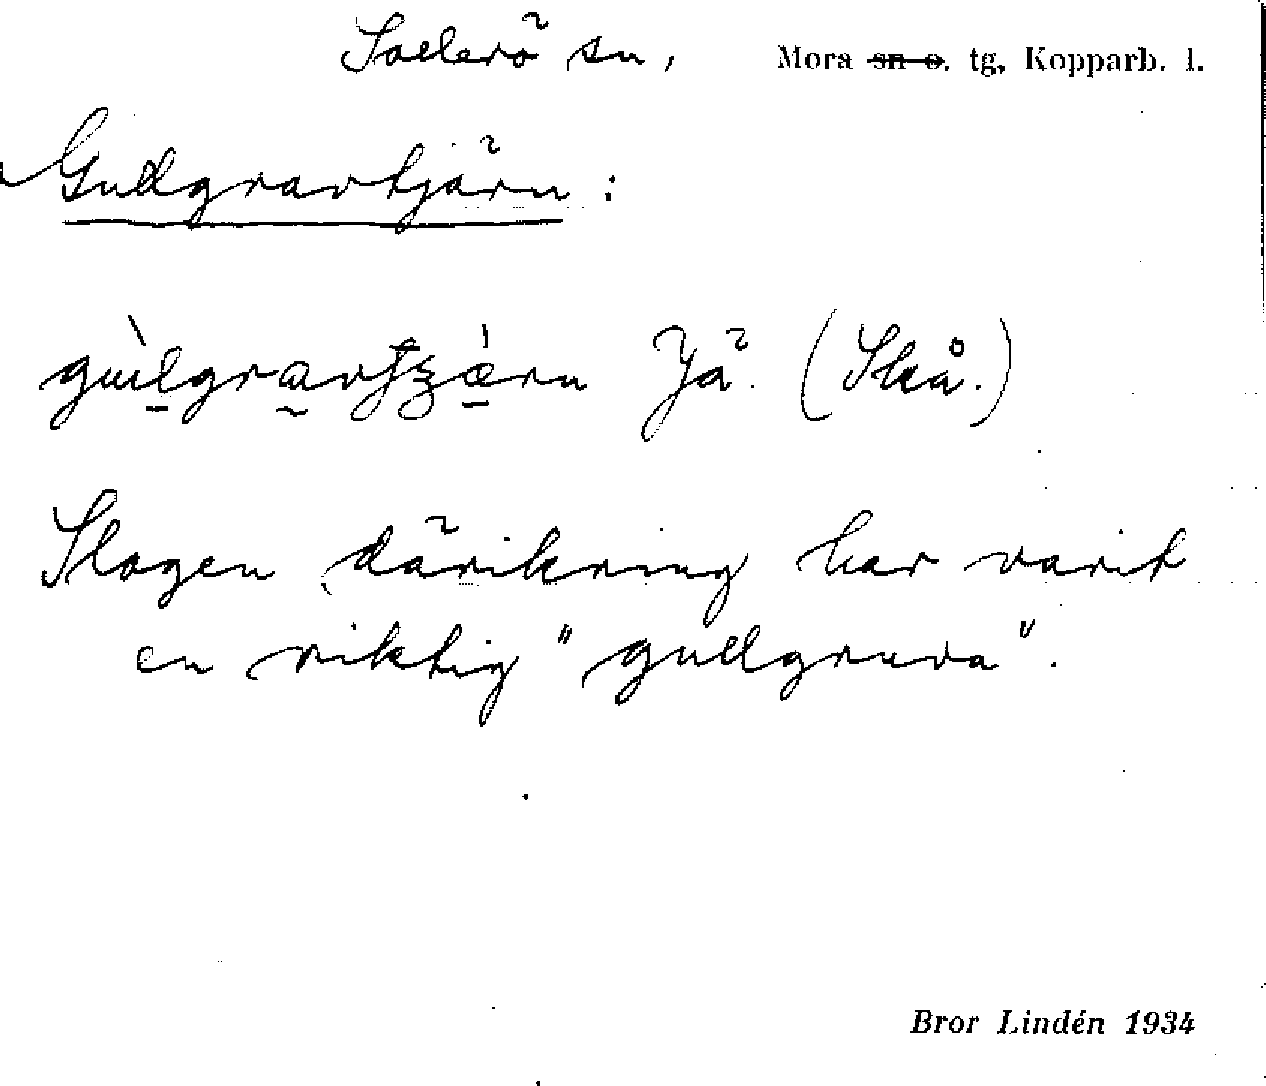 Sollerö sn, Mora sn o. tg, Kopparb. l.
Gullgravtjärn:
Jä. (Skå.)
Skogen därikring har varit
en riktig "gullgruva".
Bror Lindén 1934